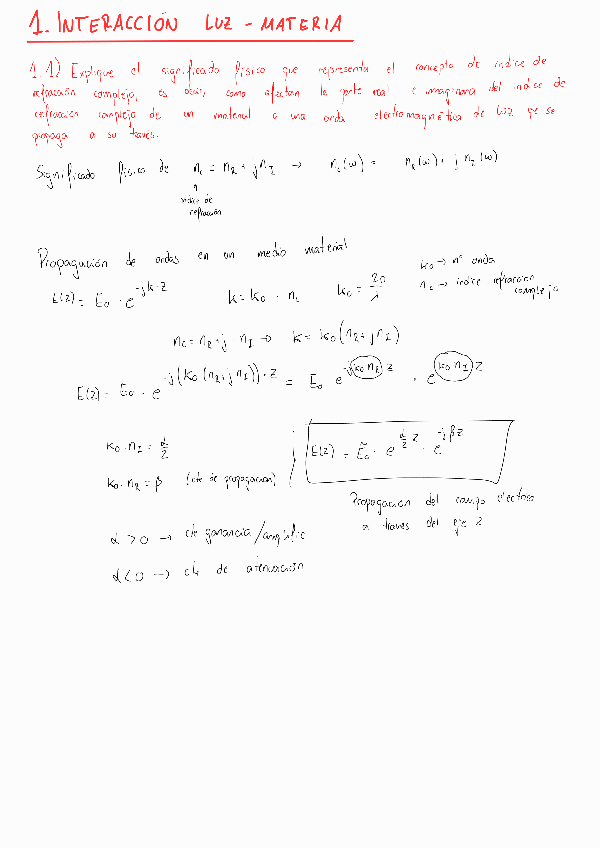 1. INTERACCIÓN LUZ - MATERIA
1.1) Explique el significado físico que representa el concepto de índice de
refracción complejo, es decir, como afectan la parte real e imaginaria del índice de
refracción complejo de un material a una onda electromagnética de luz que se
propaga a su través.
Significado físico de n_c = n_R + j n_I → n_c(ω) = n_R(ω) + j n_I(ω)
↑
índice de
refracción
Propagación de ondas en un medio material
k_0 → nº onda
E(z) = E_0 · e^{-jk·z} k = k_0 · n_c k_0 = 2π/λ
n_c → índice refracción
complejo
n_c = n_R + j n_I → k = k_0 (n_R + j n_I)
E(z) = E_0 · e^{-j(k_0 (n_R + j n_I)) · z} = E_0 e^{-j k_0 n_R z} · e^{k_0 n_I z}
k_0 · n_I = α/2
k_0 · n_R = β (cte de propagación)
E(z) = E_0 · e^{α/2 z} · e^{-jβz}
Propagación del campo eléctrico
a través del eje z
α > 0 → cte ganancia/amplific
α < 0 → cte de atenuación